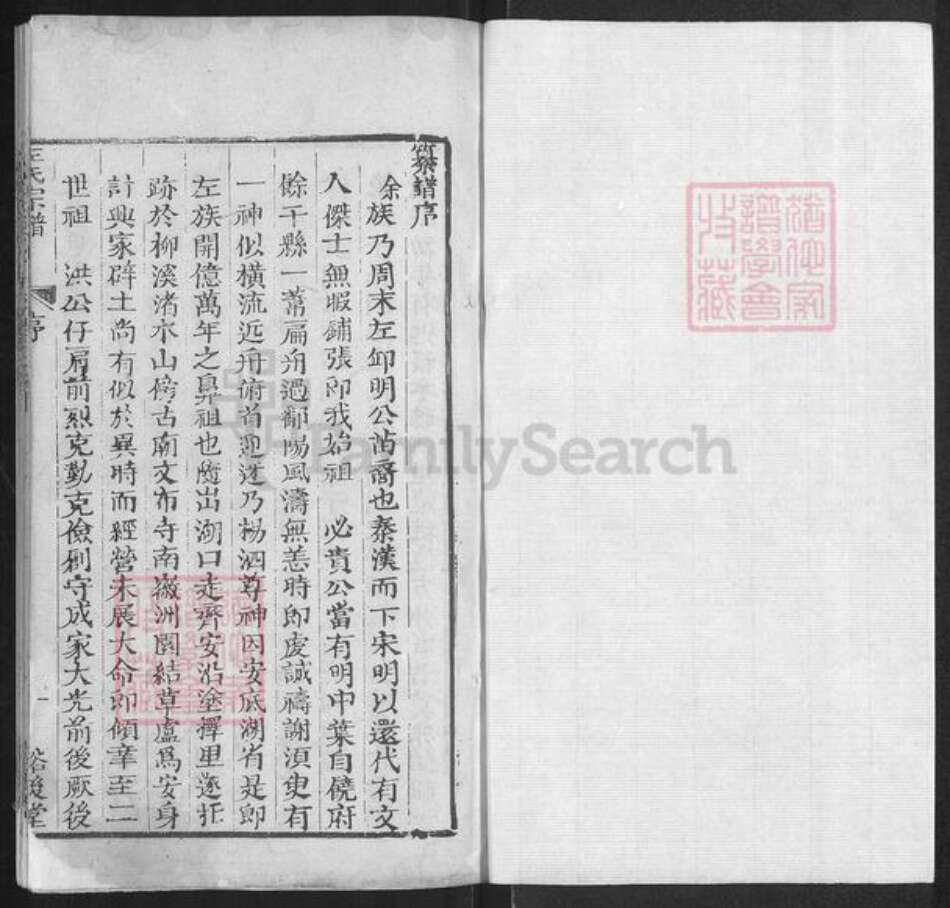 纂譜序
余族乃周末左邱明公苗裔也秦漢而下宋明以還代有文
人傑士無暇鋪張即我始祖 必貴公當有明中葉自饒府
餘干縣一葦扁舟過鄱陽風濤無恙時即虔誠禱謝湏臾有
一神似橫流近舟俯首迎迓乃楊泗尊神因安底湖省是即
左族開億萬年之鼻祖也隨出湖口走齊安沿塗擇里遂托
跡於柳溪渚水山傍古廟文布寺南嶽洲園結草盧爲安身
計興家辟土尚有似於異時而經營未展大命即傾幸至二
世祖 洪公仔肩前烈克勤克儉剏守成家大光前後厥後
左氏宗譜
序
一
裕後堂
猶他家譜學會收藏
FamilySearch